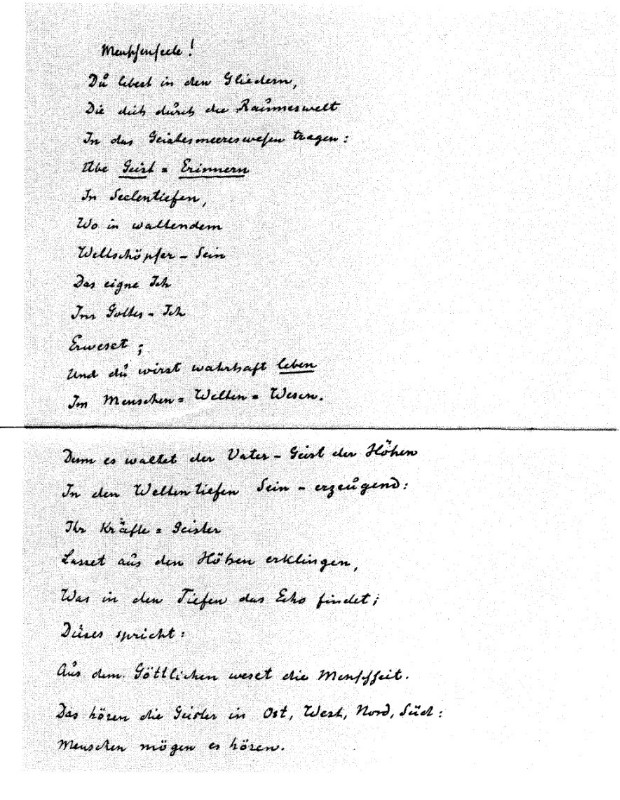 Menschenseele!
Du lebest in den Gliedern,
Die dich durch die Raumeswelt
In das Geistesmeereswesen tragen:
Übe Geist=Erinnern
In Seelentiefen,
Wo in waltendem
Weltschöpfer-Sein
Das eigne Ich
Im Gottes-Ich
Erweset;
Und du wirst wahrhaft leben
Im Menschen=Welten=Wesen.
Denn es waltet der Vater-Geist der Höhen
In den Weltentiefen Sein-erzeugend:
Ihr Kräfte=Geister
Lasset aus den Höhen erklingen,
Was in den Tiefen das Echo findet;
Dieses spricht:
Aus dem Göttlichen weset die Menschheit.
Das hören die Geister in Ost, West, Nord, Süd:
Menschen mögen es hören.